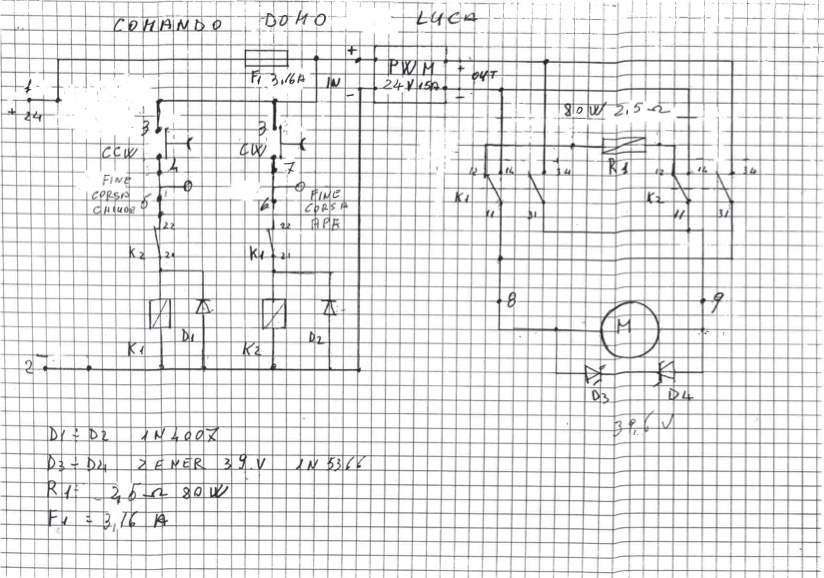 COMANDO DOMO LUCA
F1 3,16A
+ IN -
PWM
24V 15A
+ OUT -
1
+ 24
80W 2,5 Ω
R1
3
CCW
4
FINE
CORSA
CHIUDE
5
3
CW
7
FINE
CORSA
APE
6
22
K2
21
22
K1
21
12 14 34
K1
11 31
12 14 34
K2
11 31
8 9
M
K1
D1
K2
D2
2 -
D3 D4
39,6 V
D1 = D2 1N4007
D3 - D4 ZENER 39 V 1N5366
R1= 2,5 Ω 80W
F1 = 3,16 A